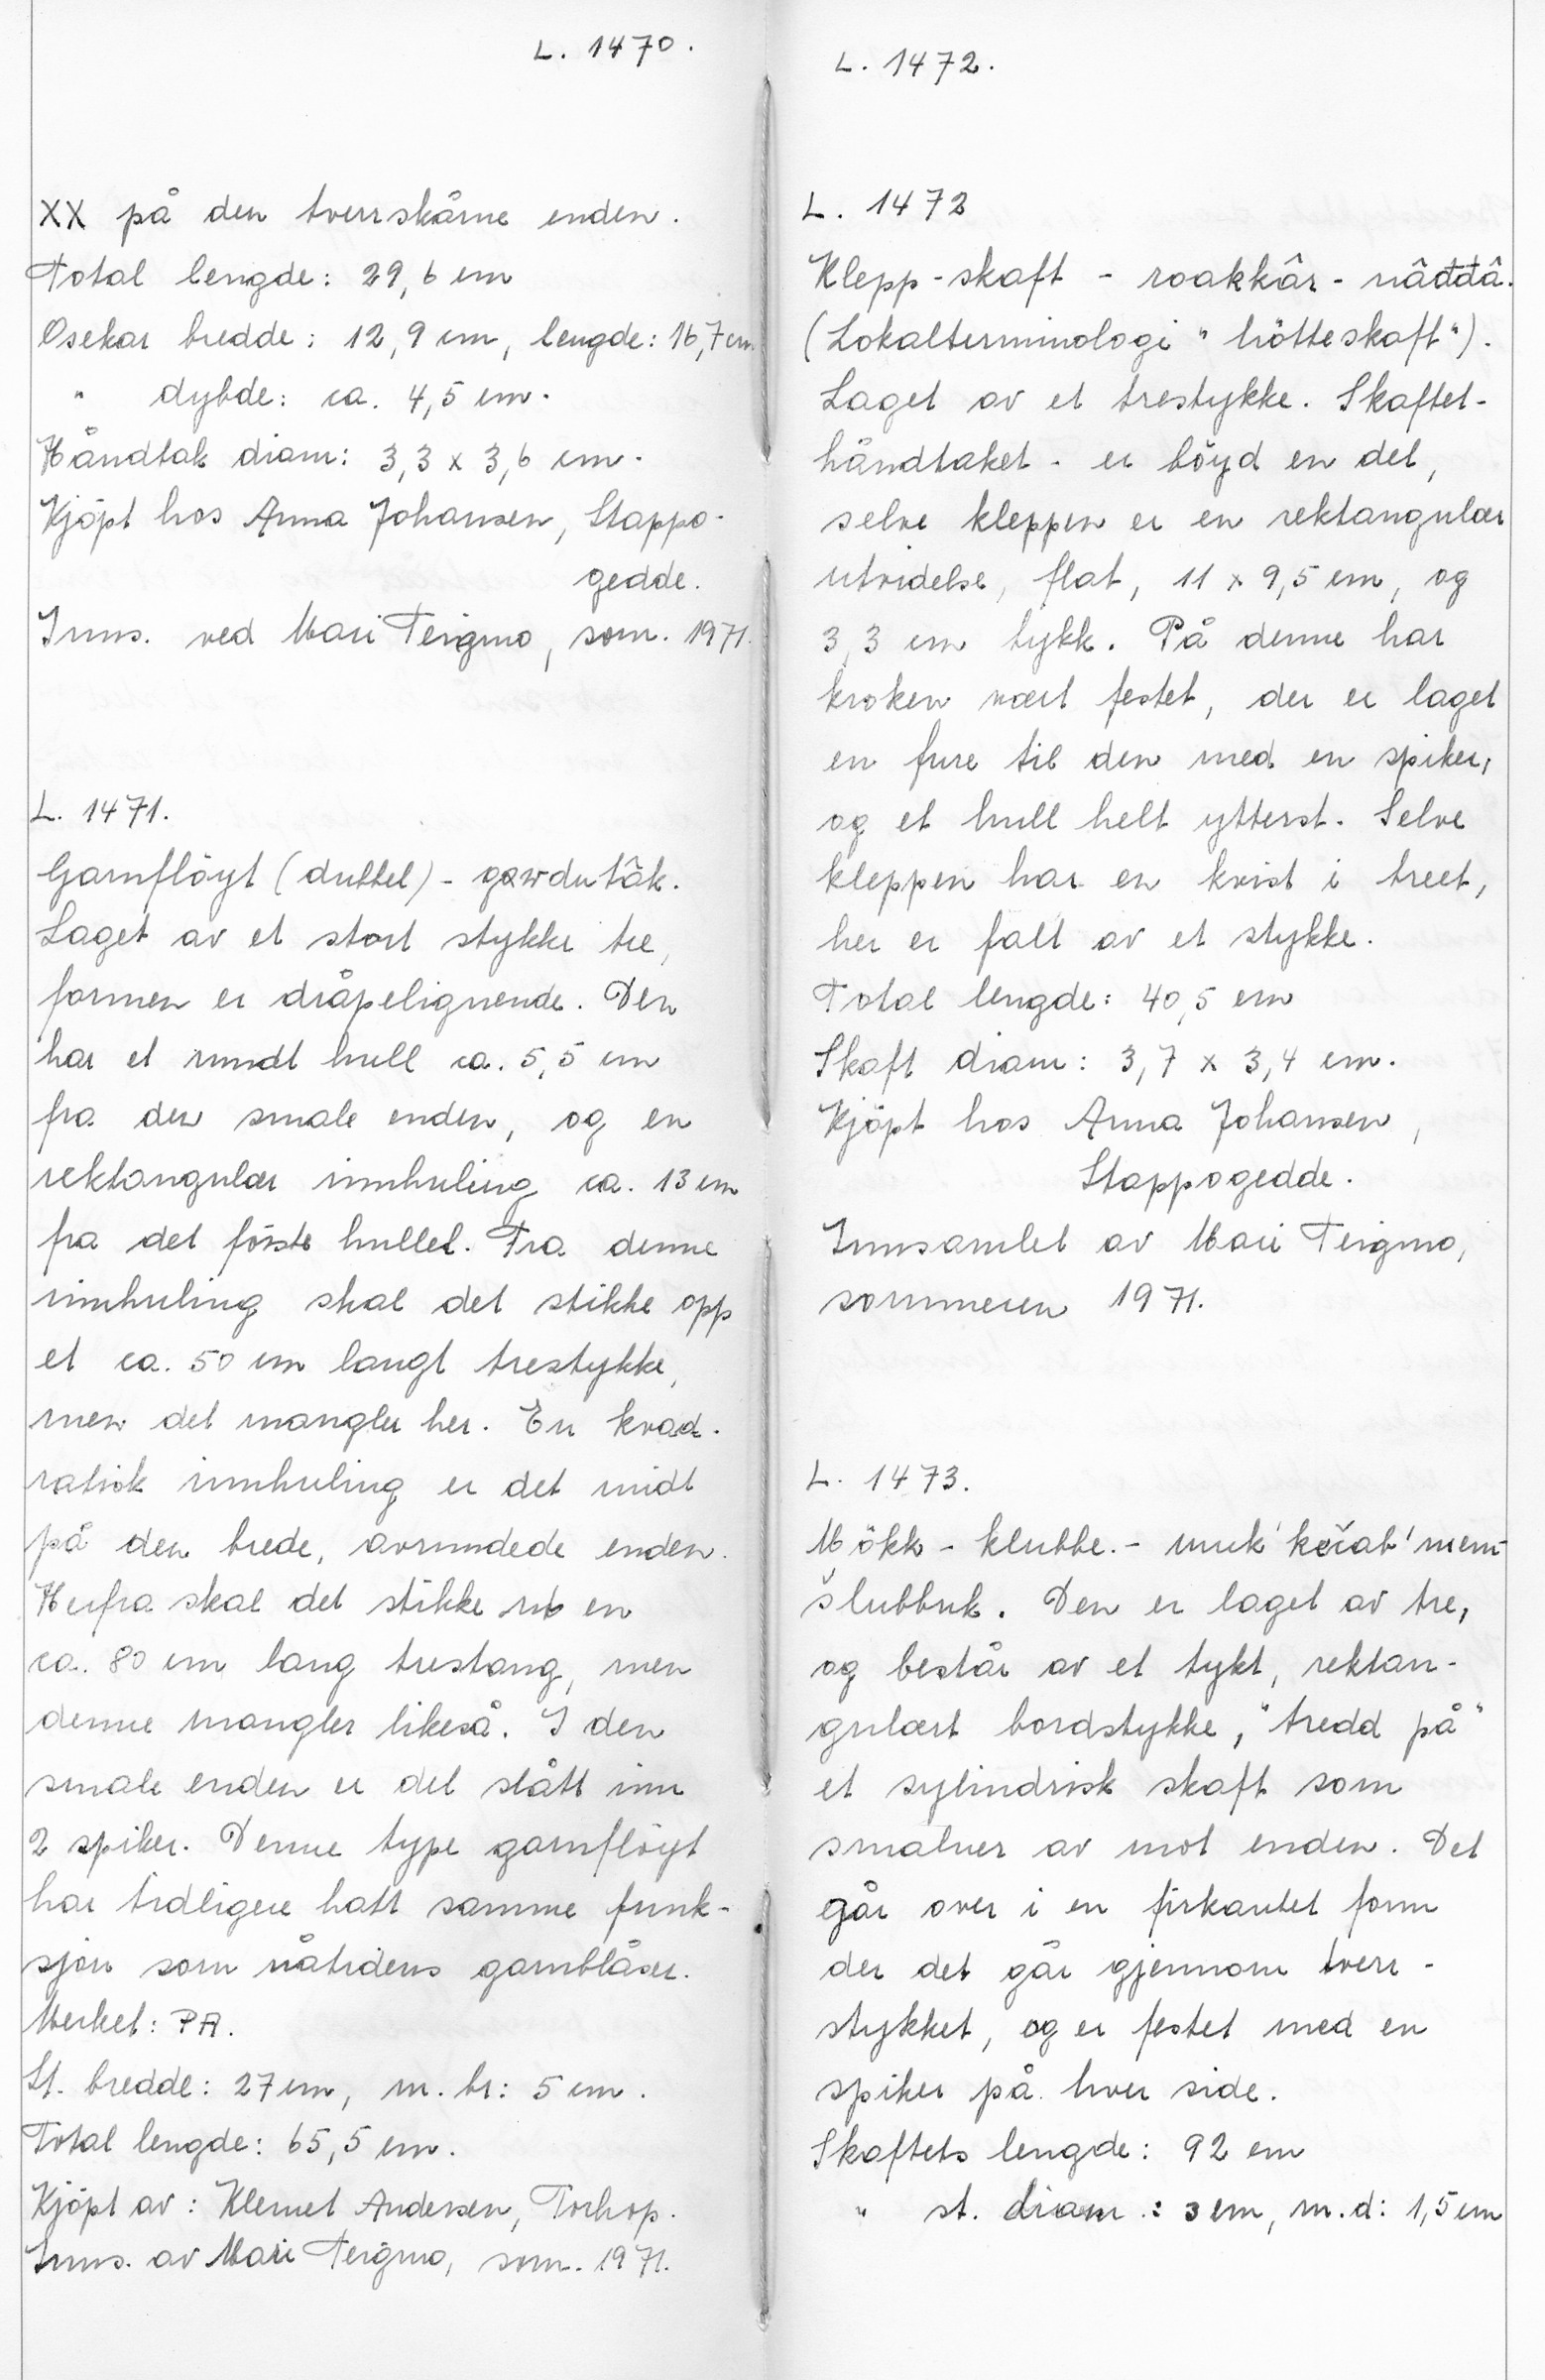 L. 1470.
XX på den tverrskårne enden.
Total lengde: 29,6 cm
Osekar bredde: 12,9 cm, lengde: 16,7 cm.
" dybde: ca. 4,5 cm.
Håndtak diam: 3,3 x 3,6 cm.
Kjöpt hos Anna Johansen, Stappo-
gedde.
Inns. ved Mari Teigmo, som. 1971.
L. 1471.
Garnflöyt (dubbel) - gawdutâk.
Laget av et stort stykke tre,
formen er dråpelignende. Den
har et rundt hull ca. 5,5 cm
fra den smale enden, og en
rektangulær innhuling ca. 13 cm
fra det förste hullet. Fra denne
innhuling skal det stikke opp
et ca. 50 cm langt trestykke,
men det mangler her. En kvad-
ratisk innhuling er det midt
på den brede, avrundede enden.
Herfra skal det stikke ut en
ca. 80 cm lang trestang, men
denne mangler likeså. I den
smale enden er det slått inn
2 spiker. Denne type garnflöyt
har tidligere hatt samme funk-
sjon som nåtidens garnblåser.
Merket: PA.
St. bredde: 27 cm, m. br: 5 cm.
Total lengde: 65,5 cm.
Kjöpt av: Klemet Andersen, Torhop.
Inns. av Mari Teigmo, som. 1971.
L. 1472.
L. 1472
Klepp-skaft - roakkâr - nâđđâ.
(Lokalterminologi "hötteskaft").
Laget av et trestykke. Skaftet-
håndtaket - er böyd en del,
selve kleppen er en rektangulær
utvidelse, flat, 11 x 9,5 cm, og
3,3 cm tykk. På denne har
kroken vært festet, der er laget
en fure til den med en spiker,
og et hull helt ytterst. Selve
kleppen har en kvist i treet,
her er falt av et stykke.
Total lengde: 40,5 cm
Skaft diam: 3,7 x 3,4 cm.
Kjöpt hos Anna Johansen,
Stappogedde.
Innsamlet av Mari Teigmo,
sommeren 1971.
L. 1473.
Mökk - klubbe. - muk'
šlubbuk. Den er laget av tre,
og består av et tykt, rektan-
gulært bordstykke, "tredd på"
et sylindrisk skaft som
smalner av mot enden. Det
går over i en firkantet form
der det går gjennom tverr-
stykket, og er festet med en
spiker på hver side.
Skaftets lengde: 92 cm
" st. diam.: 3 cm, m.d: 1,5 cm